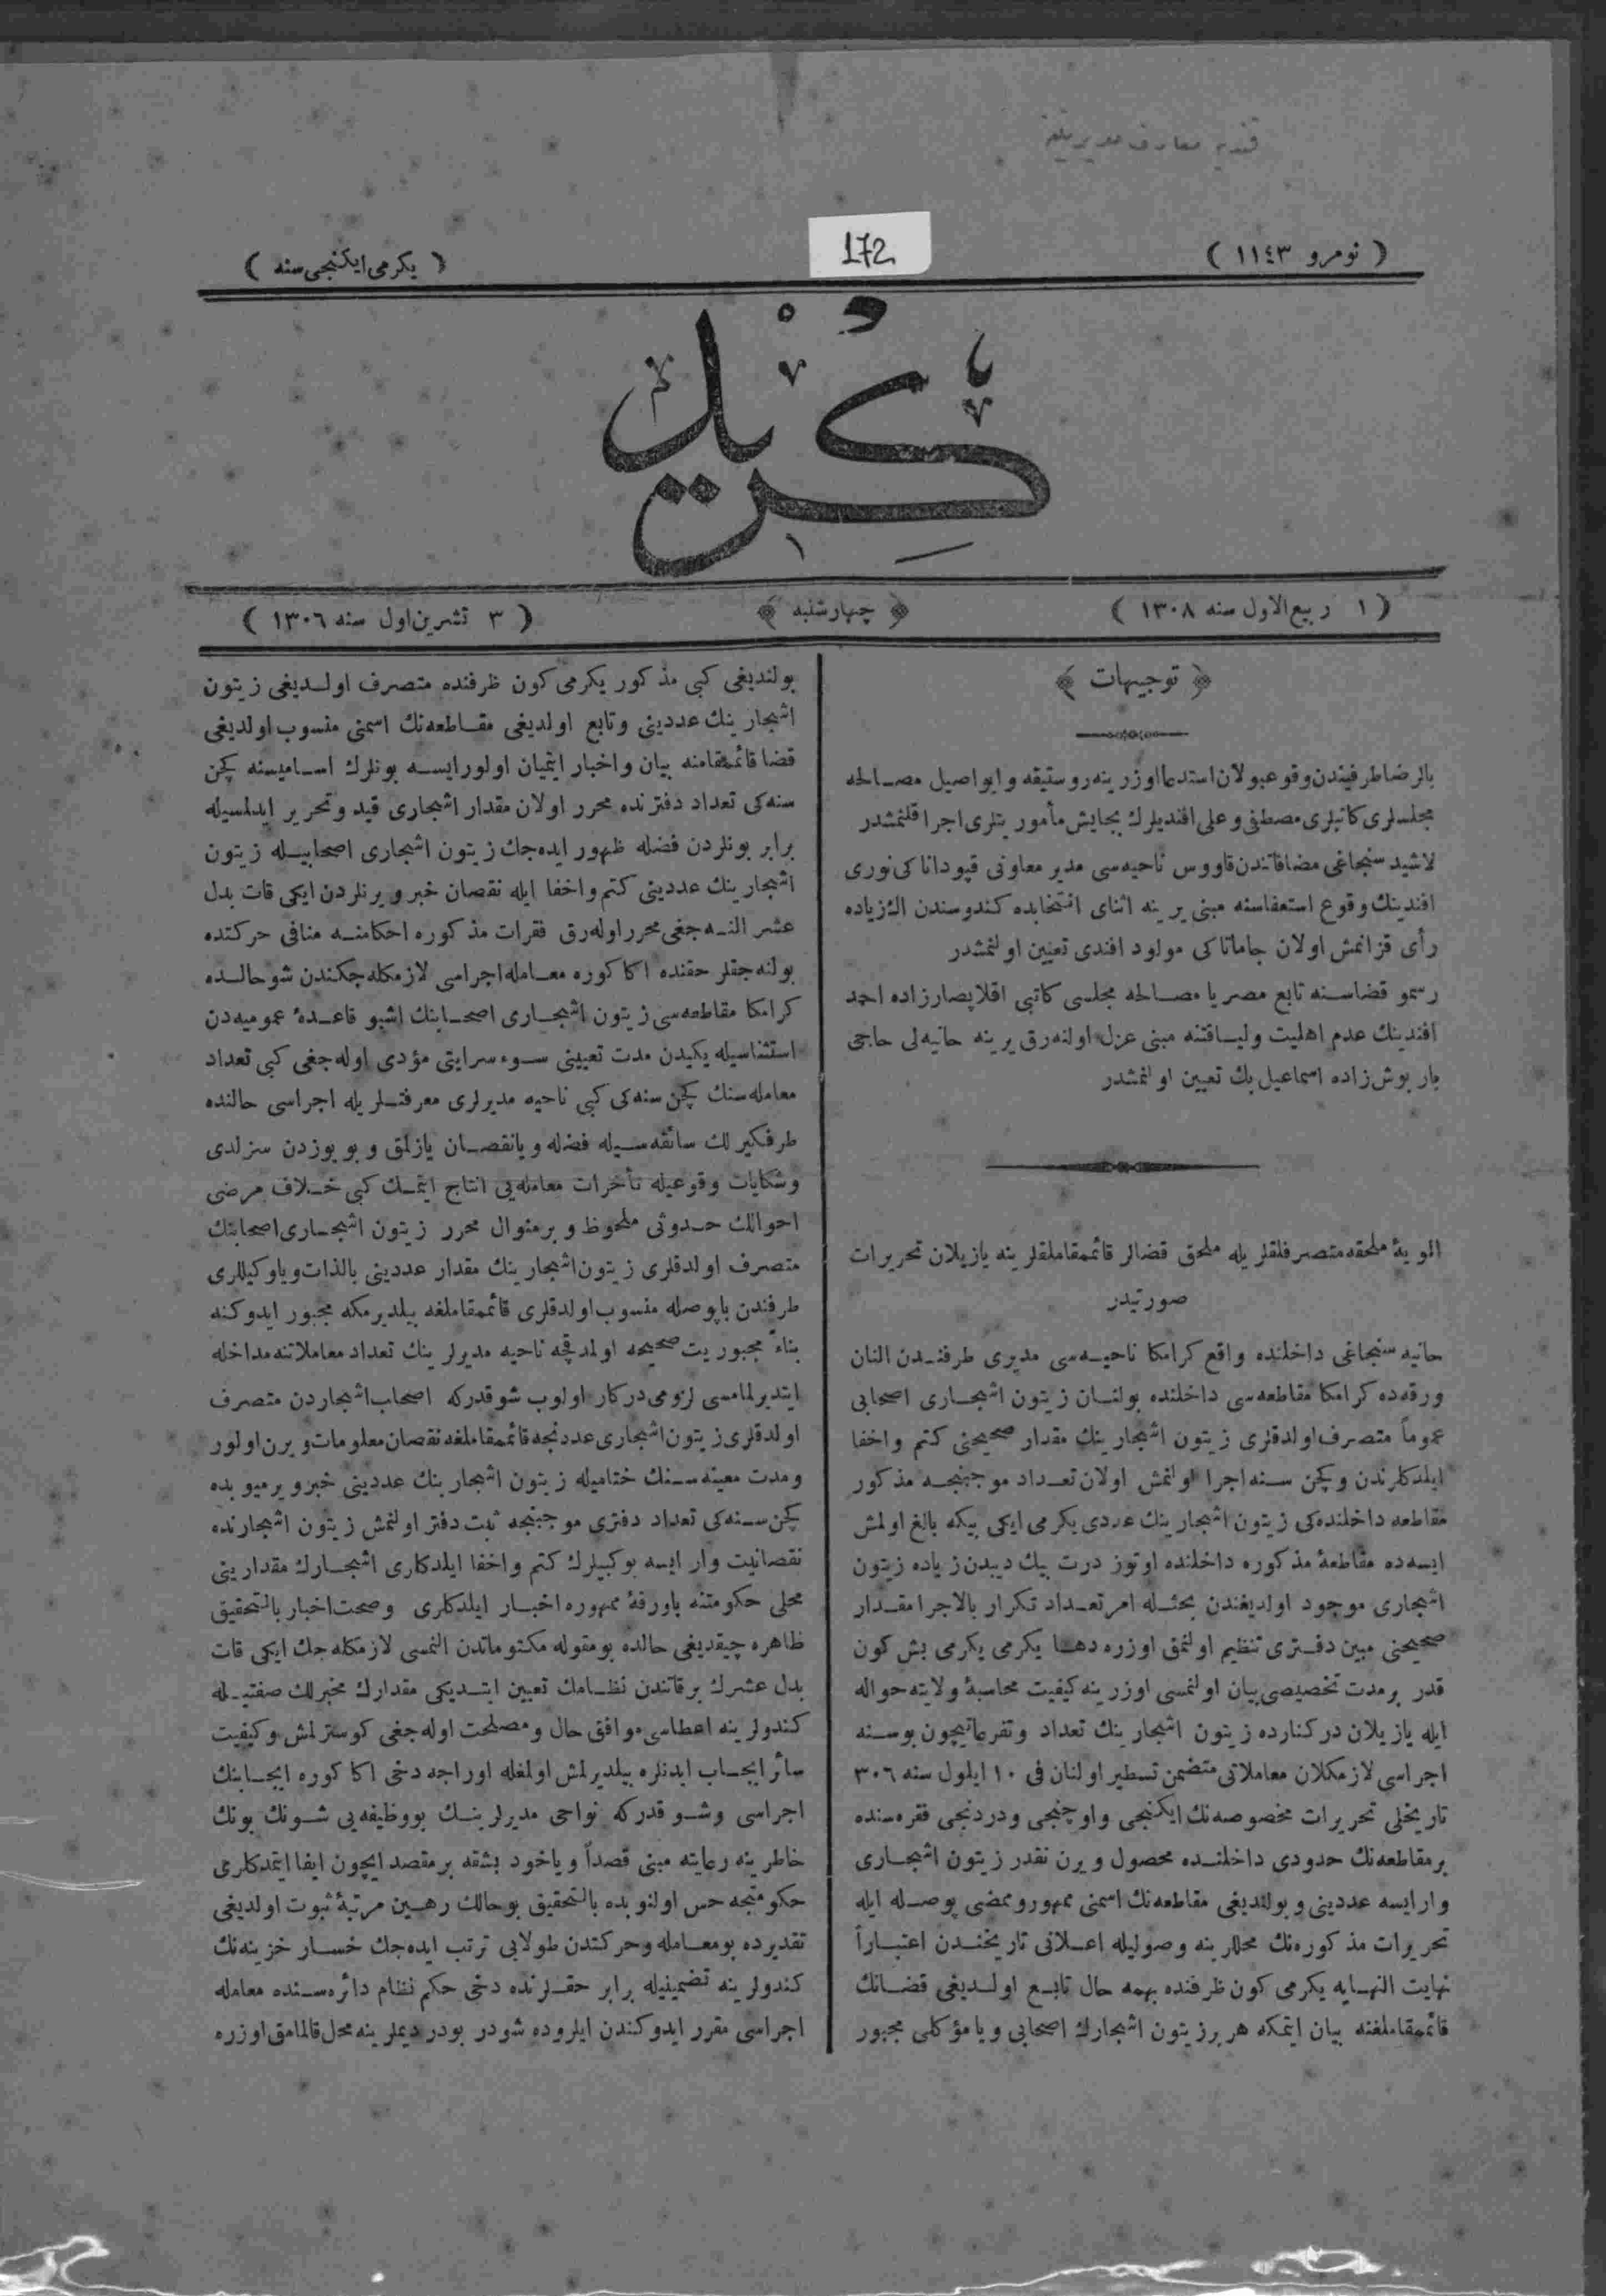 قنديه معارف مديريتنه
( نومرو ١١٤٣ )
172
( يكرمی ايكنجی سنه )
كريد
( ١ ربيع الاول سنه ١٣٠٨ )
چهارشنبه
( ٣ تشرين اول سنه ١٣٠٦ )
توجيهات
بالرضا طرفيندن وقوعبولان استدعا اوزرينه روستيقه و ابواصيل مصــالحه
مجلسلری كاتبلری مصطفی و علی افنديلرك بجايش مأموريتلری اجرا قلنمشدر
لاشيد سنجاغی مضافاتندن قاووس ناحيه‌سی مدير معاونی قپودانا كی نوری
افندينك وقوع استعفاسنه مبنی يرينه اثنای انتخابده كندوسندن اك زياده
رأی قزانمش اولان جاماتا كی مولود افندی تعيين اولنمشدر
رسمو قضاسـنه تابع مصريا مصــالحه مجلسی كاتبی اقلاپصارزاده احمد
افندينك عدم اهليت ولياقتنه مبنی عزل اولنه‌رق يرينه حانيه‌لی حاجی
باربوش‌زاده اسماعيل بك تعيين اولنمشدر
الويهٔ ملحقه متصرفلقلريله ملحق قضالر قائممقاملقلرينه يازيلان تحريرات
صورتيدر
حانيه سنجاغی داخلنده واقع كرامكا ناحيـه‌سی مديری طرفنـدن النان
ورقه‌ده كرامكا مقاطعه‌سی داخلنده بولنـان زيتون اشجـاری اصحابی
عموماً متصرف اولدقلری زيتون اشجارينك مقدار صحيحنی كتم و اخفا
ايلدكلرندن و كچن سـنه اجرا اولنمش اولان تعـداد موجبنجـه مذكور
مقاطعه داخلنده‌كی زيتون اشجارينك عددی يكرمی ايكی بيكه بالغ اولمش
ايسه‌ده مقاطعهٔ مذكوره داخلنده اوتوز درت بيك ديبدن زياده زيتون
اشجاری موجود اولديغندن بحثـله امر تعـداد تكرار بالاجرا مقـدار
صحيحنی مبين دفـتری تنظيم اولنمق اوزره دهـا يكرمی يكرمی بش كون
قدر بر مدت تخصيصی بيان اولنمسی اوزرينه كيفيت محاسبهٔ ولايته حواله
ايله يازيلان دركنارده زيتون اشجارينك تعداد وتفرعاتيچون بو سـنه
اجراسی لازمكلان معاملاتی متضمن تسطير اولنان فی ١٠ ايلول سنه ٣٠٦
تاريخلی تحريرات مخصوصه‌نك ايكنجی و اوچنجی و دردنجی فقره‌سنده
بر مقاطعه‌نك حدودی داخلنـده محصول ويرن نقدر زيتون اشجـاری
وار ايسه عدديني و بولنديغی مقاطعه‌نك اسمنی ممهور و ممضی پوصـله ايله
تحريرات مذكوره‌نك محللرينه وصوليله اعـلانی تاريخنـدن اعتبـاراً
نهايت النهـايه يكرمی كون ظرفنده بهمه حال تابـع اولـديغی قضـانك
قائممقاملغنه بيان ايتمكه هر بر زيتون اشجارك اصحابی و يا مؤكلی مجبور
بولنديغی كبی مذكور يكرمی كون ظرفنده متصرف اولـديغی زيتون
اشجارينك عددينی و تابع اولديغی مقـاطعه‌نك اسمنی منسوب اولديغی
قضا قائممقامنه بيان و اخبار ايتميان اولورايسـه بونلرك اسـاميسنه كچن
سنه‌كی تعداد دفترنده محرر اولان مقدار اشجاری قيد و تحرير ايدلمسيله
برابر بونلردن فضله ظهور ايده‌جك زيتون اشجاری اصحابيـله زيتون
اشجارينك عددينی كتم و اخفا ايله نقصان خبر ويرنلردن ايكی قات بدل
عشر النـه‌جغی محرر اوله‌رق فقرات مذكوره احكامنـه منافی حركتده
بولنه‌جقلر حقنده اكا كوره معـامله اجراسی لازمكله‌جكندن شو حالـده
كرامكا مقاطعه‌سی زيتون اشجـاری اصحـابنك اشبو قاعـدهٔ عموميه‌دن
استثناسيله يكيدن مدت تعيينی سـوء سرايتی مؤدی اوله‌جغی كبی تعداد
معامله‌سنك كچن سنه‌كی كبی ناحيه مديرلری معرفتـلريله اجراسی حالنده
طرفكيرلك سائقه‌سـيله فضله و يا نقصـان يازلمق و بو يوزدن سزلدی
و شكايات وقوعيله تأخرات معامله‌يی انتاج ايتمـك كبی خـلاف مرضی
احوالك حـدوثی ملحوظ و بر منوال محرر زيتون اشجـاری اصحابنك
متصرف اولدقلری زيتون اشجارينك مقدار عددينی بالذات و ياوكيللری
طرفندن باپوصله منسوب اولدقلری قائممقاملغه بيلديرمكه مجبور ايدوكنه
بناءً مجبوريت صحيحه اولمدقچه ناحيه مديرلرينك تعداد معاملاتنه مداخله
ايتديرلمامسی لزومی دركار اولوب شو قدركه اصحاب اشجاردن متصرف
اولدقلری زيتون اشجاری عددنجه قائممقاملغه نقصان معلومات ويرن اولور
و مدت معينه‌سـنك ختاميله زيتون اشجارينك عددينی خبر ويرميوبده
كچن سـنه‌كی تعداد دفتری موجبنجه ثبت دفتر اولنمش زيتون اشجارنده
نقصانيت وار ايسه بو كبيلرك كتم و اخفا ايلدكلری اشجـارك مقدارينی
محلی حكومتنه باورقهٔ ممهوره اخبـار ايلدكلری و صحت اخبار بالتحقيق
ظاهره چيقديغی حالده بومقوله مكتوماتدن النمسی لازمكله‌جك ايكی قات
بدل عشرك بر قاتندن نظـامك تعيين ايتـديكی مقدارك مخبرلك صفتيـله
كندولرينه اعطاسی موافق حال و مصلحت اوله‌جغی كوسترلمش و كيفيت
سائر ايجـاب ايدنلره بيلديرلمش اولمغله اوراجه دخی اكا كوره ايجـابنك
اجراسی و شـو قدركه نواحی مديرلرينـك بو وظيفه‌يی شـونك بونك
خاطرينه رعايته مبنی قصداً و ياخود بشقه بر مقصد ايچون ايفا ايتمدكلری
حكومتجه حس اولنوبده بالتحقيق بوحالك رهـين مرتبهٔ ثبوت اولديغی
تقديرده بومعـامله و حركتدن طولايی ترتب ايده‌جك خسـار خزينه‌نك
كندولرينه تضمينيله برابر حقـلرنده دخی حكم نظام دائره‌سـنده معامله
اجراسی مقرر ايدوكندن ايلروده شودر بودر ديملرينه محل قالمامق اوزره